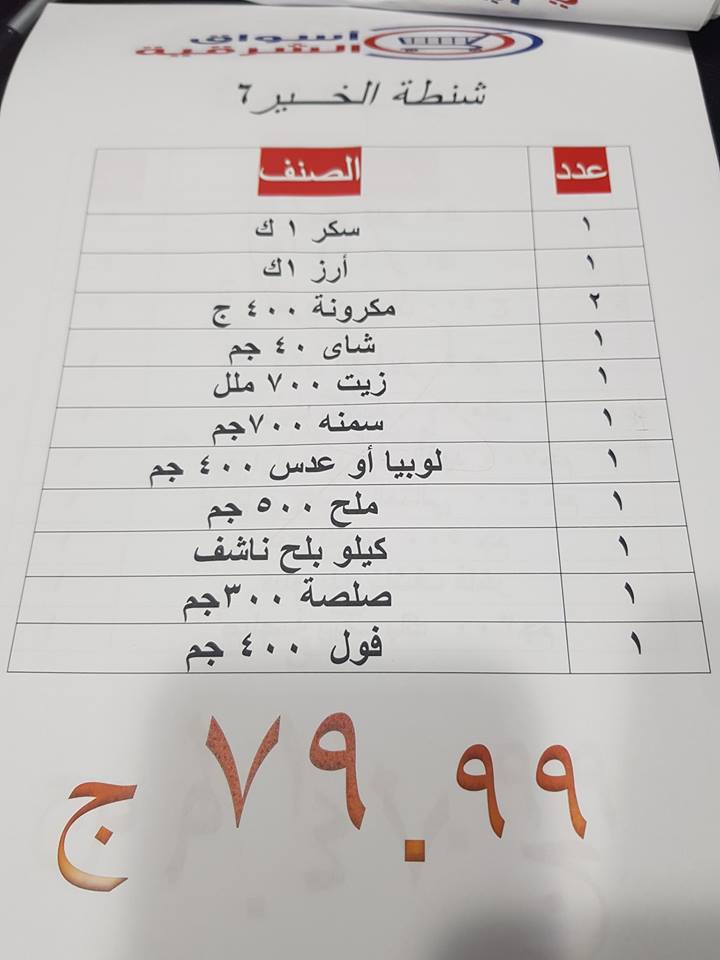 أسواق
الشرقية
شنطة الخير ٦
عدد الصنف
١ سكر ١ ك
١ أرز ١ك
٢ مكرونة ٤٠٠ ج
١ شاى ٤٠ جم
١ زيت ٧٠٠ ملل
١ سمنه ٧٠٠جم
١ لوبيا أو عدس ٤٠٠ جم
١ ملح ٥٠٠ جم
١ كيلو بلح ناشف
١ صلصة ٣٠٠جم
١ فول ٤٠٠ جم
٧٩.٩٩ ج